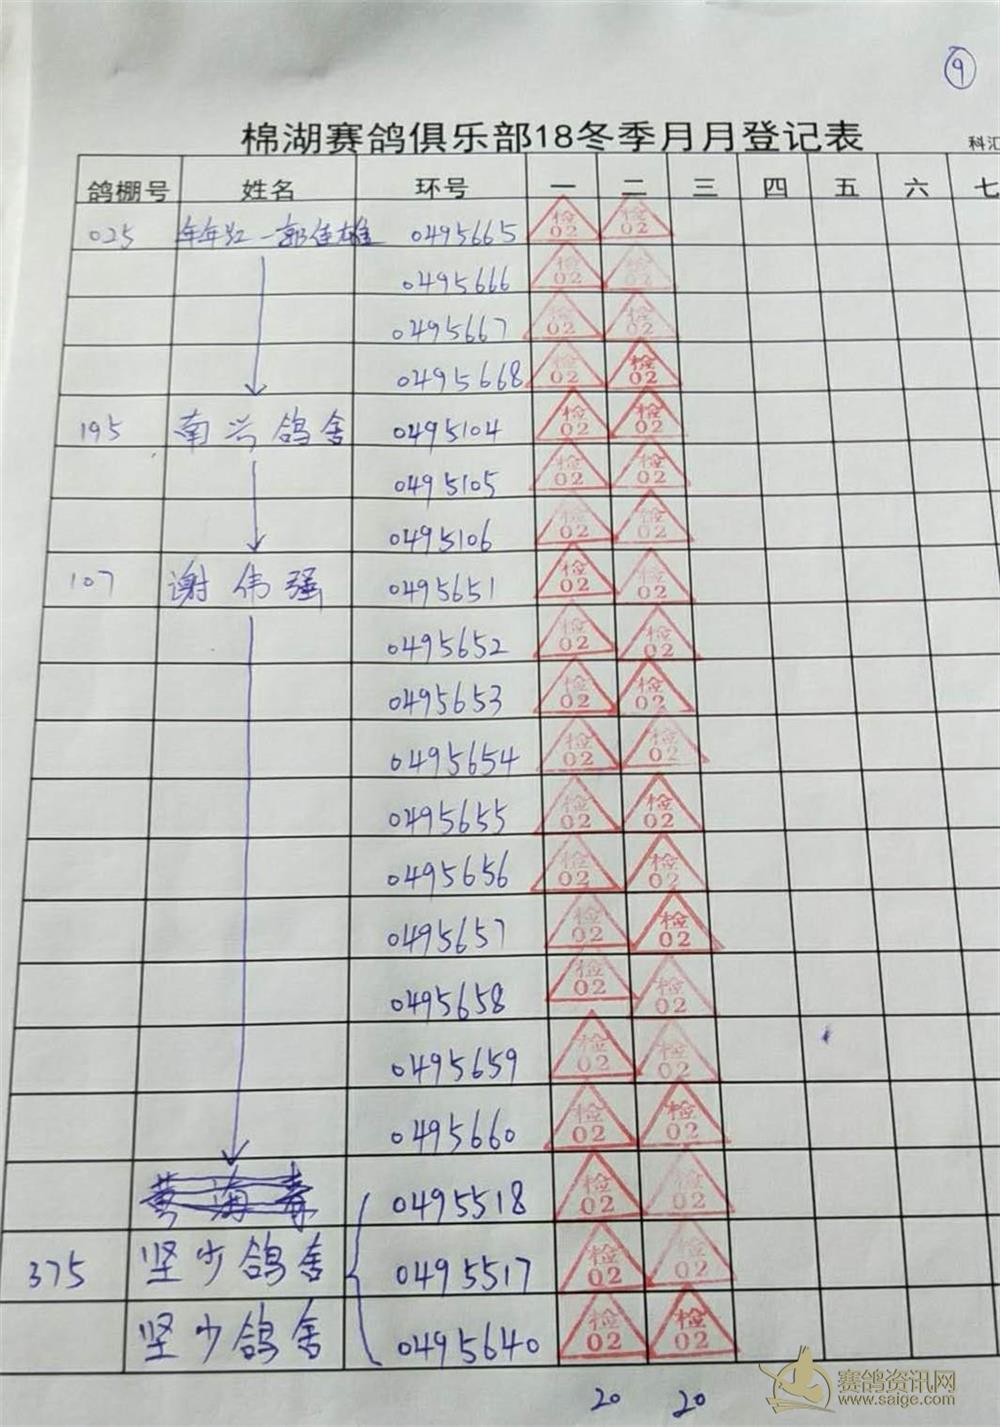 9
棉湖赛鸽俱乐部18冬季月月登记表
科汇
鸽棚号 姓名 环号 一 二 三 四 五 六 七
025 年年红一郭佳雄 0495665 检02 检02
0495666 检02 检02
0495667 检02 检02
0495668 检02 检02
195 南兴鸽舍 0495104 检02 检02
0495105 检02 检02
0495106 检02 检02
107 谢伟强 0495651 检02 检02
0495652 检02 检02
0495653 检02 检02
0495654 检02 检02
0495655 检02 检02
0495656 检02 检02
0495657 检02 检02
0495658 检02 检02
0495659 检02 检02
0495660 检02 检02
0495518 检02 检02
375 坚少鸽舍 0495517 检02 检02
坚少鸽舍 0495640 检02 检02
20 20
赛鸽资讯网
www.saige.com